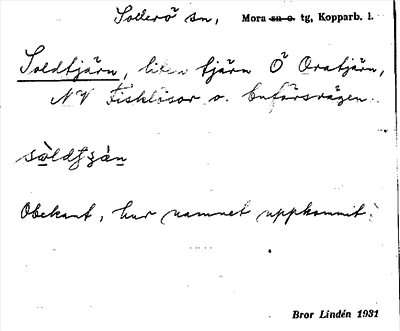 Sollerö sn, Mora sn o. tg, Kopparb. l.
Soldtjärn, liten tjärn Ö Oratjärn,
NV Fisklösor o. buförsvägen.
sòldtjạ̈̀n
Obekant, hur namnet uppkommit.
Bror Lindén 1931